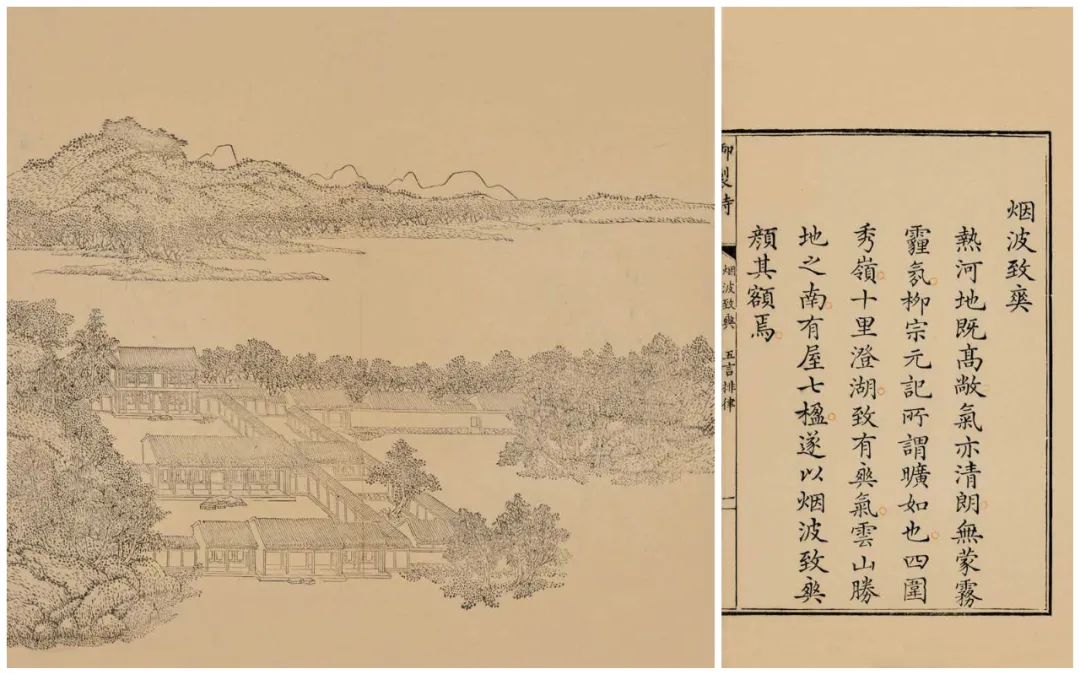 烟波致爽
熱河地既髙敞氣亦清朗無蒙霧
霾氛柳宗元記所謂曠如也四圍
秀嶺十里澄湖致有爽氣雲山勝
地之南有屋七楹遂以烟波致爽
顔其額焉
御製詩
烟波致爽
五言排律